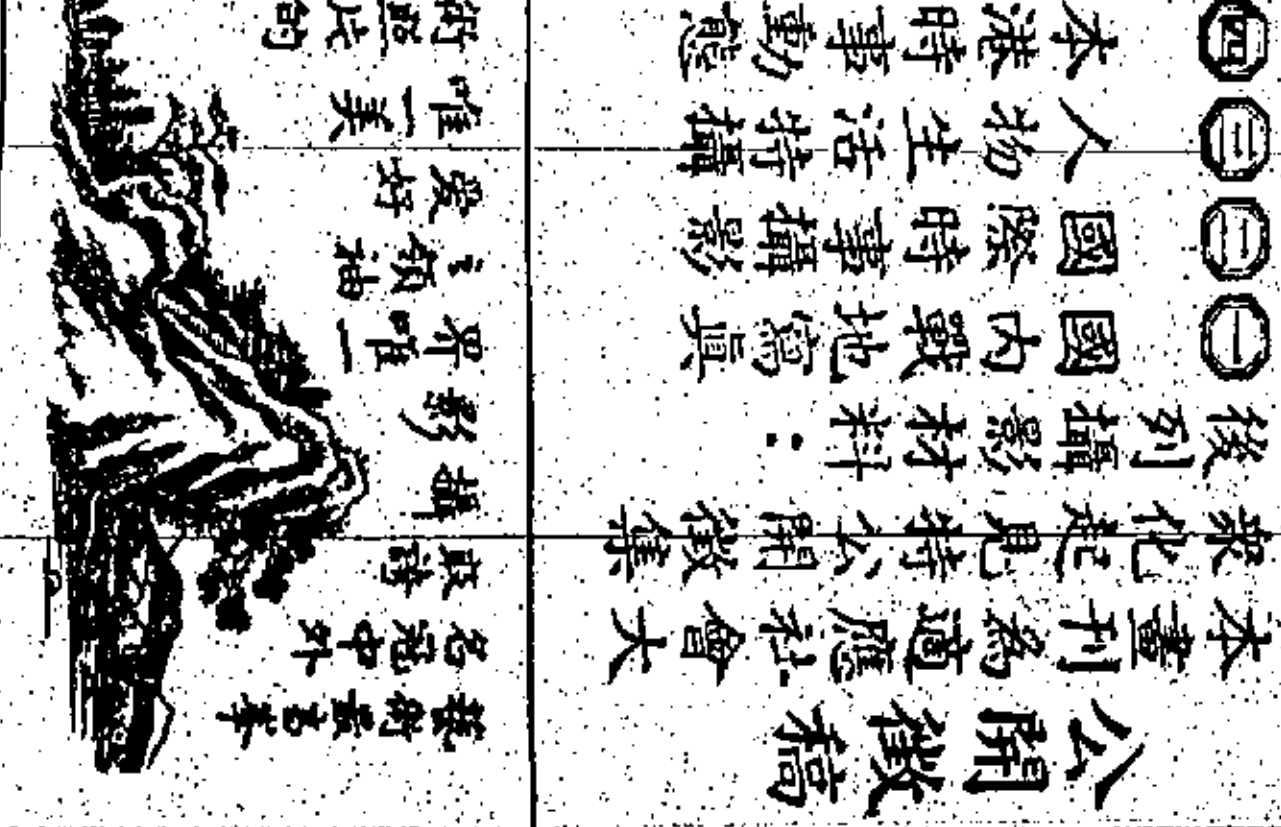 公開徵稿
本畫刊為適應社會大
眾化起見特公開徵集
後列攝影材料：
㊀ 國內戰地寫真
㊁ 國際時事攝影
㊂ 人物生活特攝
㊃ 本港時事動態
藝術最高峯
名冠中外
攝
影
界唯一
之領袖
愛好
唯一美
術
的